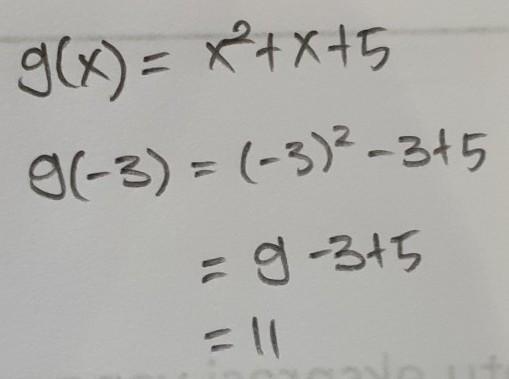 g(x) = x² + x + 5
g(-3) = (-3)² - 3 + 5
= 9 - 3 + 5
= 11